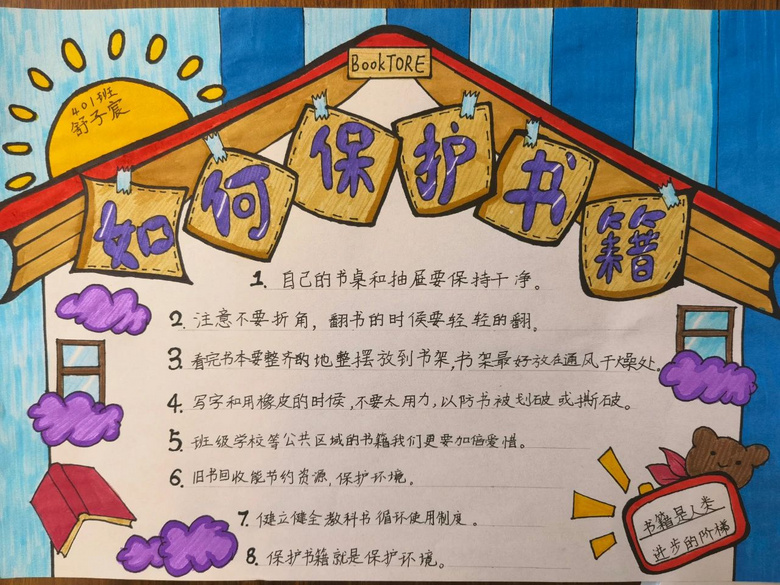 BookTORE
401班
舒子宸
如何保护书籍
1. 自己的书桌和抽屉要保持干净。
2. 注意不要折角，翻书的时候要轻轻的翻。
3. 看完书本要整齐的地整摆放到书架，书架最好放在通风干燥处。
4. 写字和用橡皮的时候，不要太用力，以防书被划破或撕破。
5. 班级学校等公共区域的书籍我们更要加倍爱惜。
6. 旧书回收能节约资源，保护环境。
7. 健立健全教科书循环使用制度。
8. 保护书籍就是保护环境。
书籍是人类
进步的阶梯